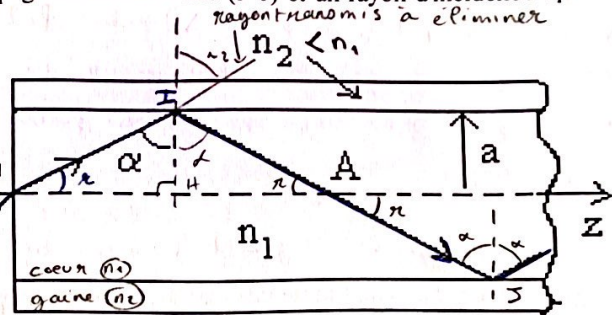 rayon transmis à éliminer
n₂ < n₁
I
α
α
r
H
r
A
a
r
Z
n₁
α
α
cœur (n₁)
gaine (n₂)
J